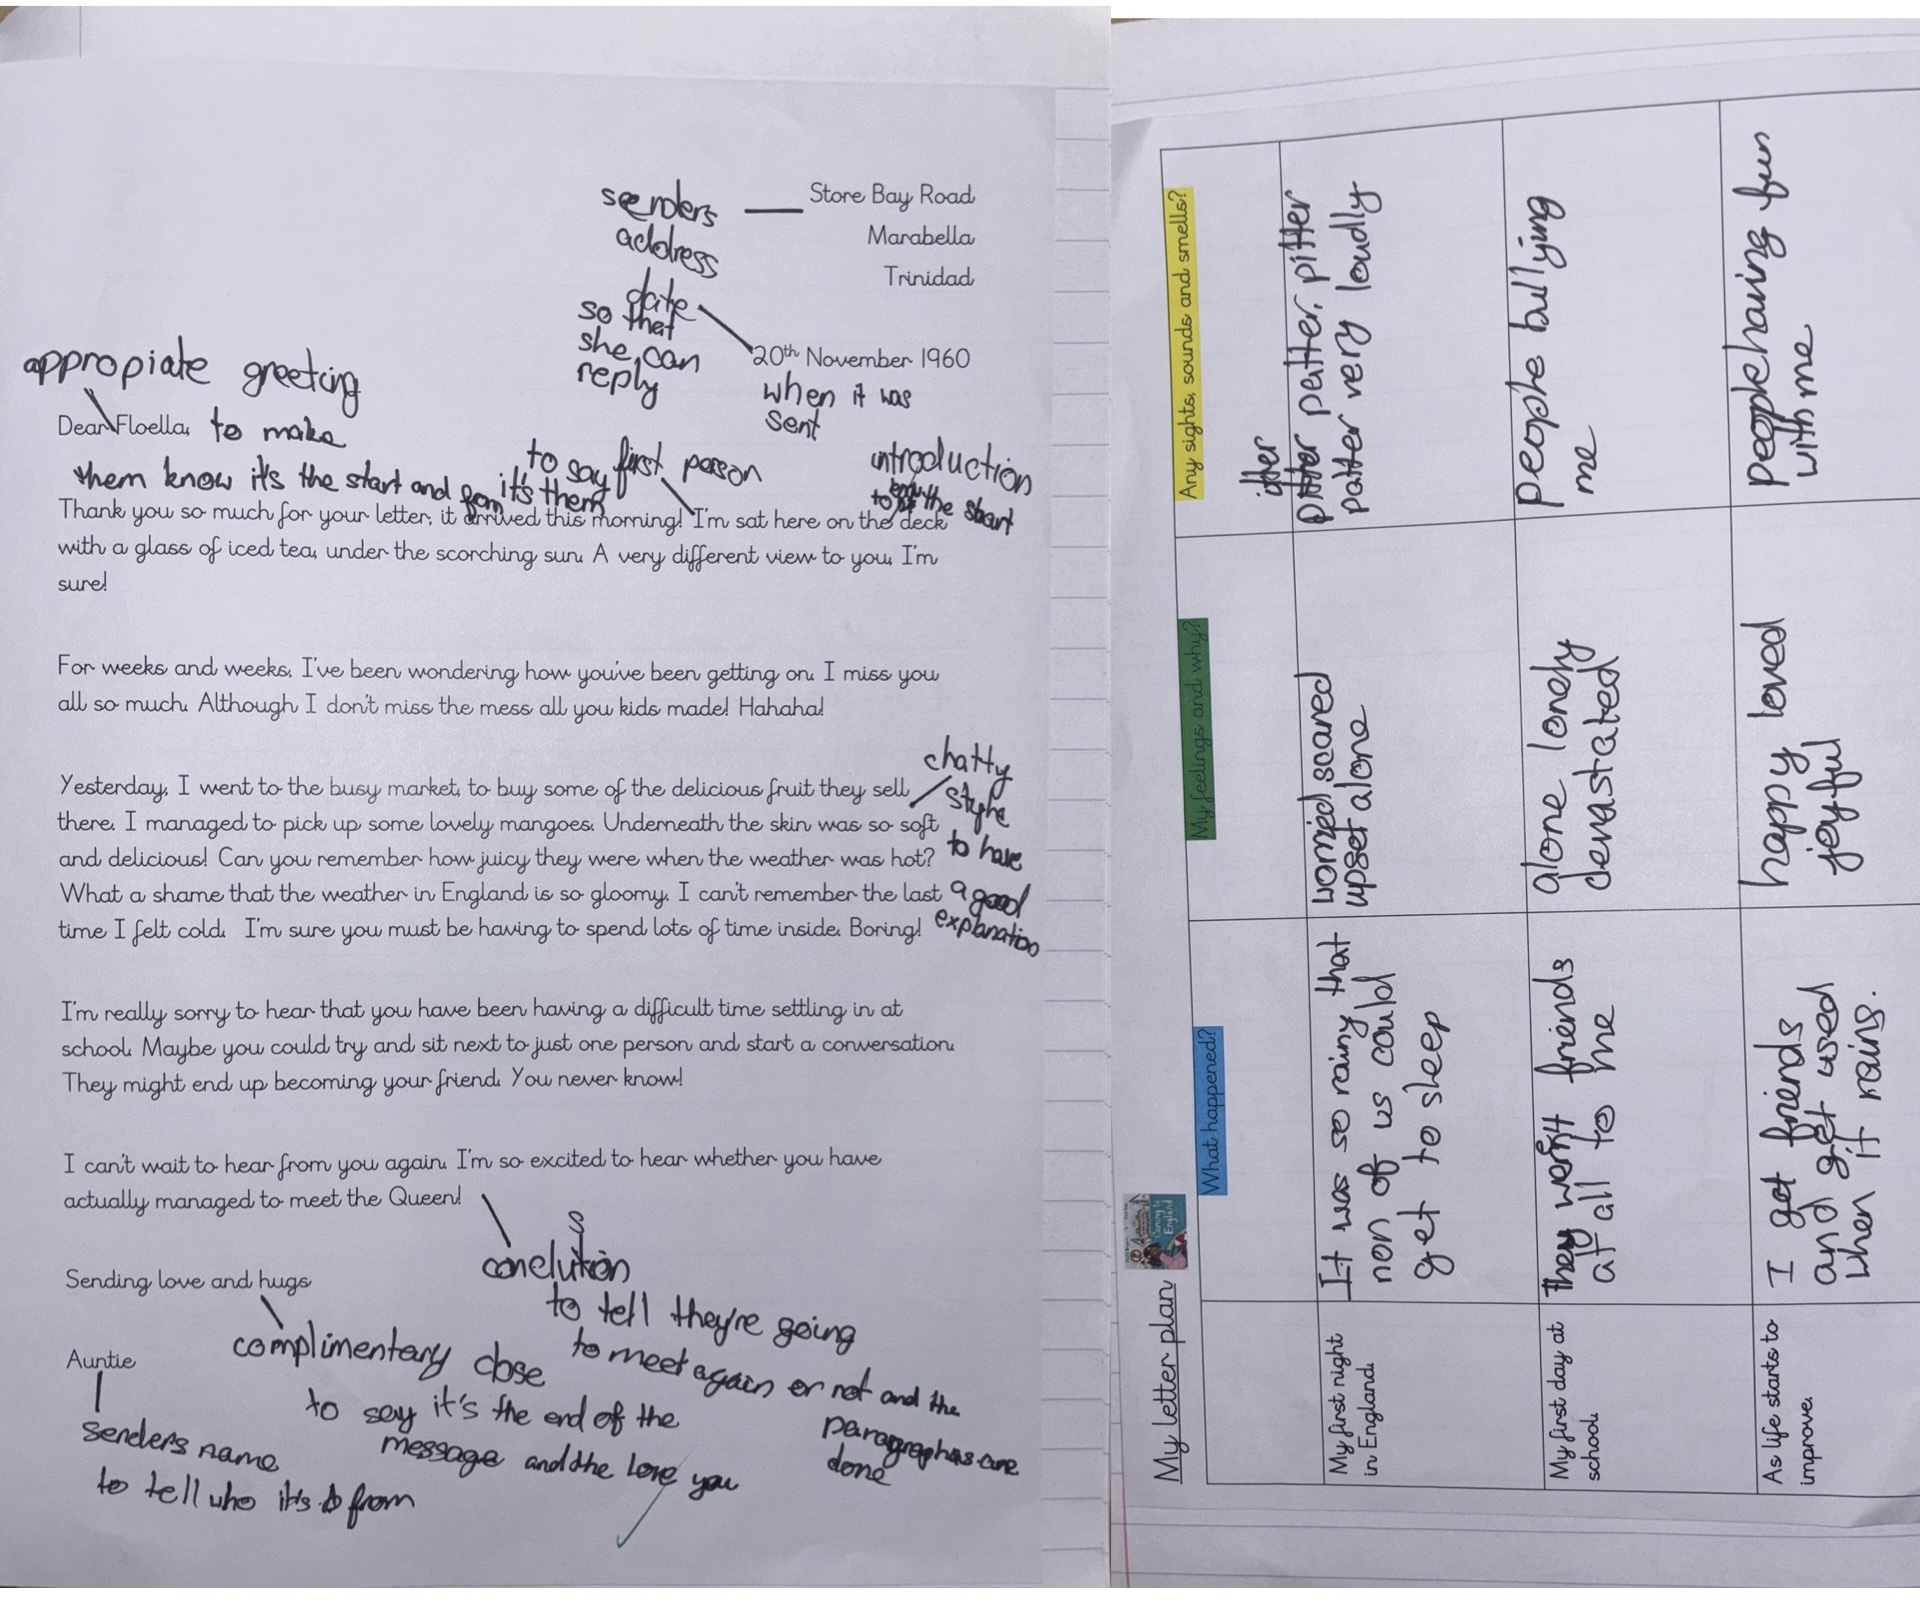 senders
address
Store Bay Road
Marabella
Trinidad
date
so that
she can
reply
20th November 1960
when it was
sent
appropiate greeting
Dear Floella,
to make
them know it's the start and from
to say
it's them
first person
introduction
to
the start
Thank you so much for your letter, it arrived this morning! I'm sat here on the deck
with a glass of iced tea, under the scorching sun. A very different view to you, I'm
sure!
For weeks and weeks, I've been wondering how you've been getting on. I miss you
all so much. Although I don't miss the mess all you kids made! Hahaha!
Yesterday, I went to the busy market, to buy some of the delicious fruit they sell
there. I managed to pick up some lovely mangoes. Underneath the skin was so soft
and delicious! Can you remember how juicy they were when the weather was hot?
What a shame that the weather in England is so gloomy. I can't remember the last
time I felt cold. I'm sure you must be having to spend lots of time inside. Boring!
chatty
style
to have
a good
explanation
I'm really sorry to hear that you have been having a difficult time settling in at
school. Maybe you could try and sit next to just one person and start a conversation.
They might end up becoming your friend. You never know!
I can't wait to hear from you again. I'm so excited to hear whether you have
actually managed to meet the Queen!
conclution
s
to tell they're going
to meet again or not and the
paragraphs are
done
Sending love and hugs
complimentary close
to say it's the end of the
message and the love you
Auntie
senders name
to tell who it's from
My letter plan
Coming to
England
What happened?
My feelings and why?
Any sights, sounds and smells?
My first night
in England.
It was so rainy that
non of us could
get to sleep
worried scared
upset alone
pitter patter, pitter
patter very loudly
My first day at
school.
they weren't friends
at all to me
alone lonely
devastated
people bullying
me
As life starts to
improve.
I get friends
and get used
when it rains.
happy loved
joyful
people having fun
with me